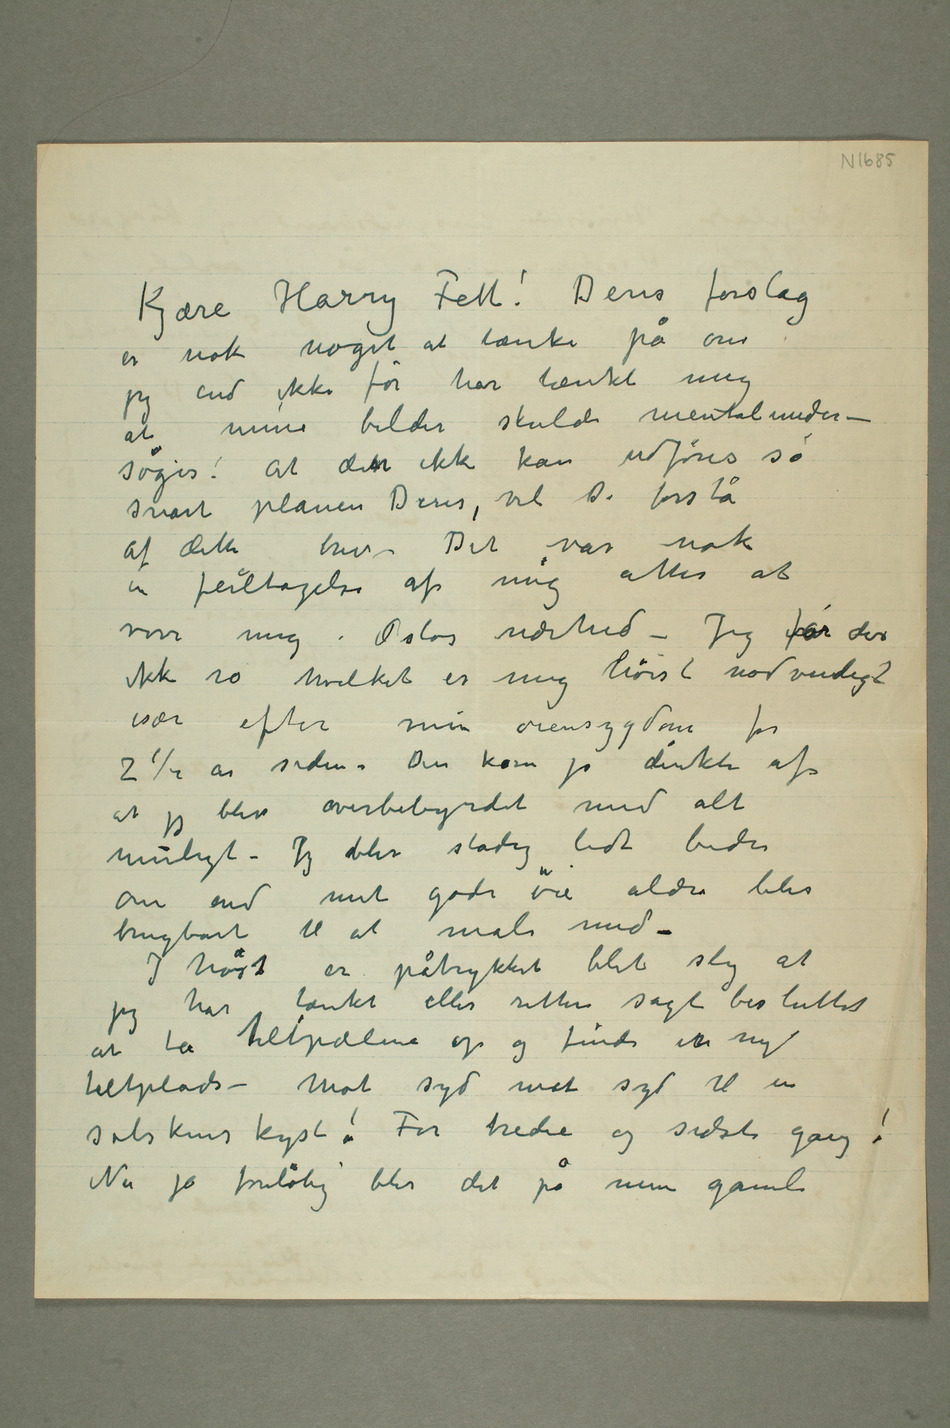 N1685
Kjære Harry Fett! Deres forslag
er nok noget at tænke på om
jeg end ikke før har tænkt mig
at mine bilder skulde mentalunder–
søges! At den ikke kan udføres så
snart planen Deres, vil De forstå
af dette brev – Det var nok
en feiltagelse af mig atter at
vove mig i Oslos nærhed – Jeg får der
ikke ro hvilket er mig høist nødvendigt
især efter min øiensygdom for
2 ½ år siden. Den kom jo direkte af
at jeg blev overbebyrdet med alt
muligt – Jeg blir stadig lidt bedre
om end mit gode øie aldri blir
brugbart til at male med –
I høst er påtrykket blet slig at
jeg har tænkt eller rettere sagt besluttet
at ta teltpælene op og finde en ny
teltplads – Mot syd mot syd til en
solskinskyst! For tredie og sidste gang!
Nu ja foreløbig blir det på mine gamle